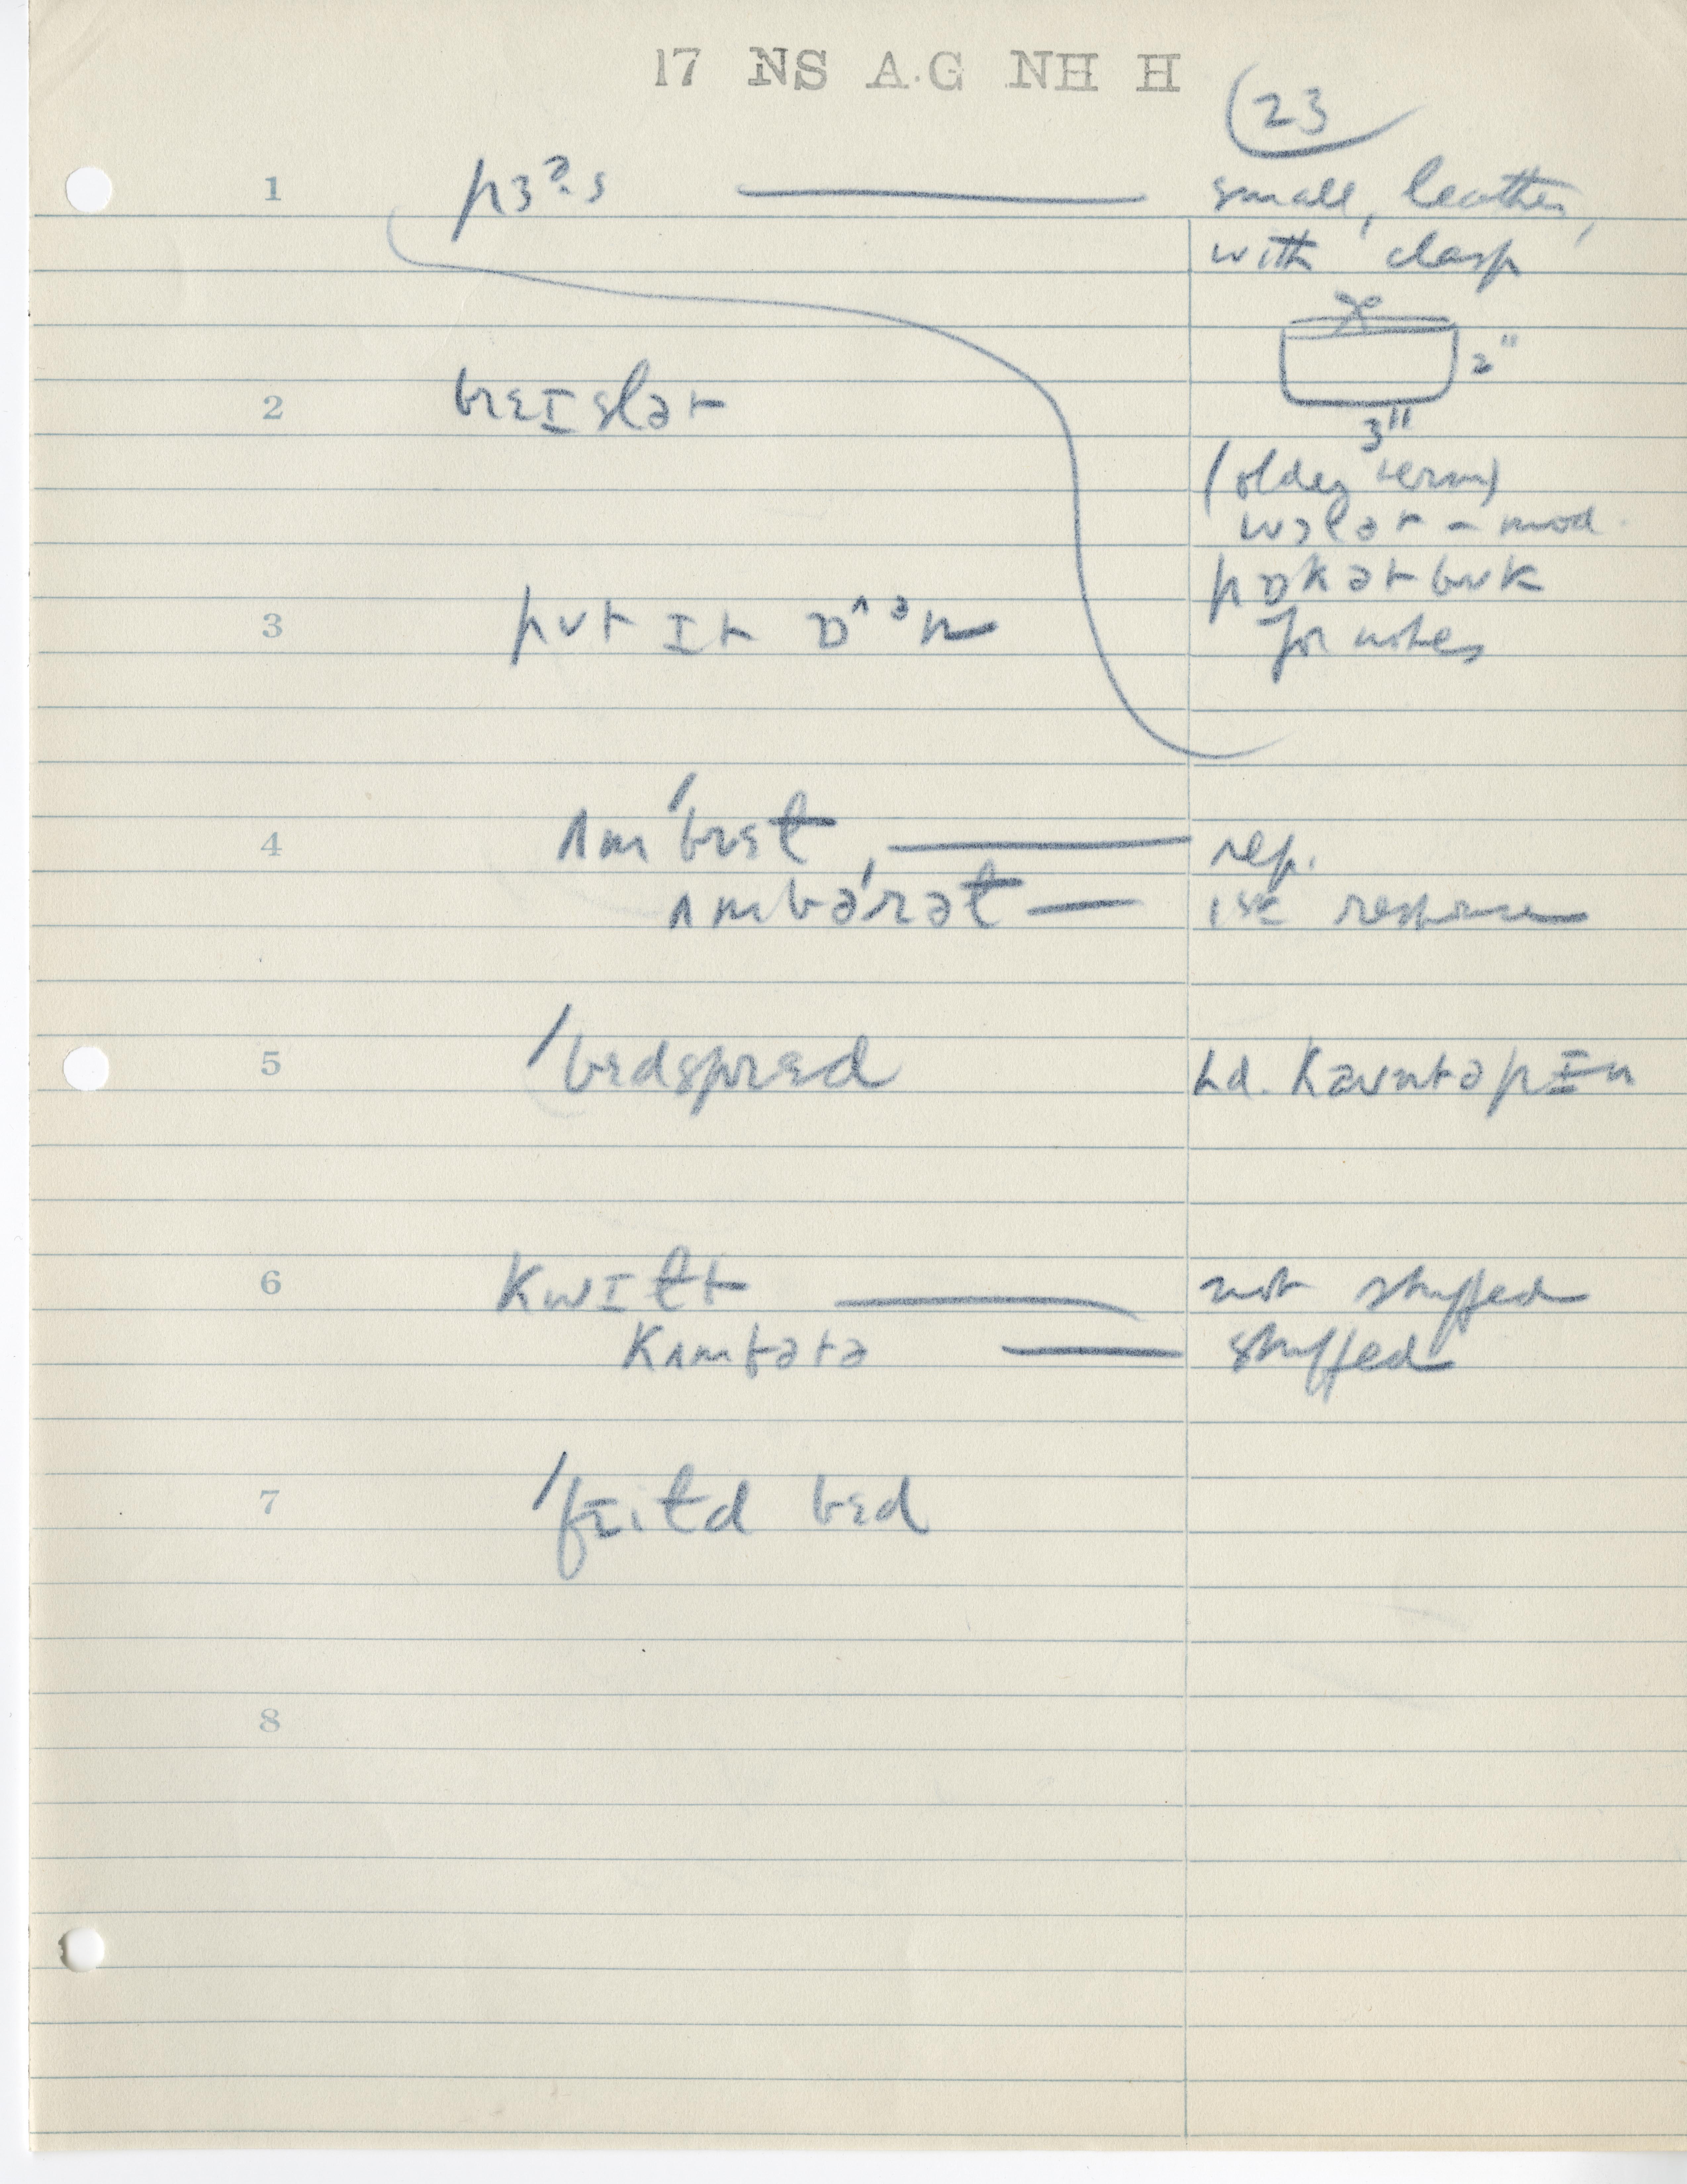 17 NS A.G NH H
23
1 pɜˀ·s small, leather,
with clasp
2"
3"
2 brɛɪslət
(older term)
wɔlət – mod.
pɒkətbʊk
for notes
3 pʊt ɪt ɒ^ᵊn
4 ʌm'brɛɫ, rep.
ʌmbə́rəɫ 1st response
5 'bɛdsprɛd hd. kaʊntəpɪn
6 kwɪɫt not stuffed
kʌmfətə stuffed
7 'fɪiɫd bɛd
8